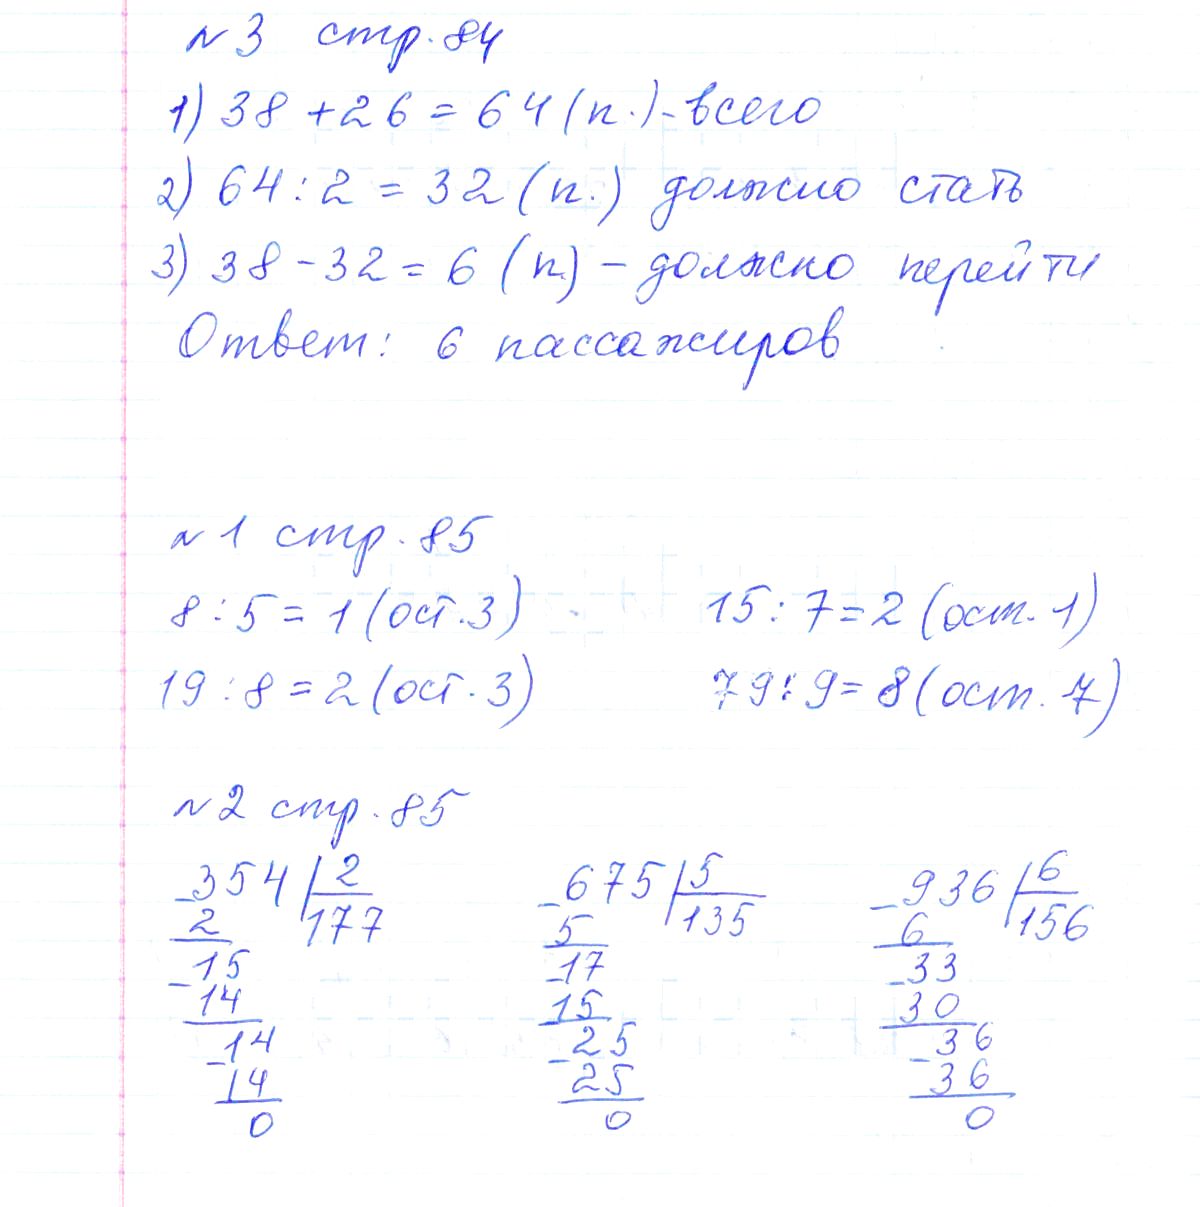 №3 стр. 84
1) 38 + 26 = 64 (п.) - всего
2) 64 : 2 = 32 (п.) должно стать
3) 38 - 32 = 6 (п) - должно перейти
Ответ: 6 пассажиров
№1 стр. 85
8 : 5 = 1 (ост. 3) 15 : 7 = 2 (ост. 1)
19 : 8 = 2 (ост. 3) 79 : 9 = 8 (ост. 7)
№2 стр. 85
-354 | 2 -675 | 5 -936 | 6
2 177 5 135 6 156
-15 -17 -33
14 15 30
-14 -25 -36
14 25 36
0 0 0